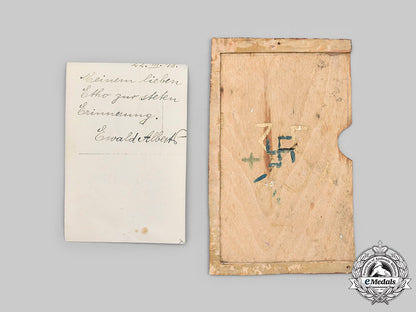 Meinem lieben
Etho zur steten
Erinnerung.
Ewald Albert
eMedals